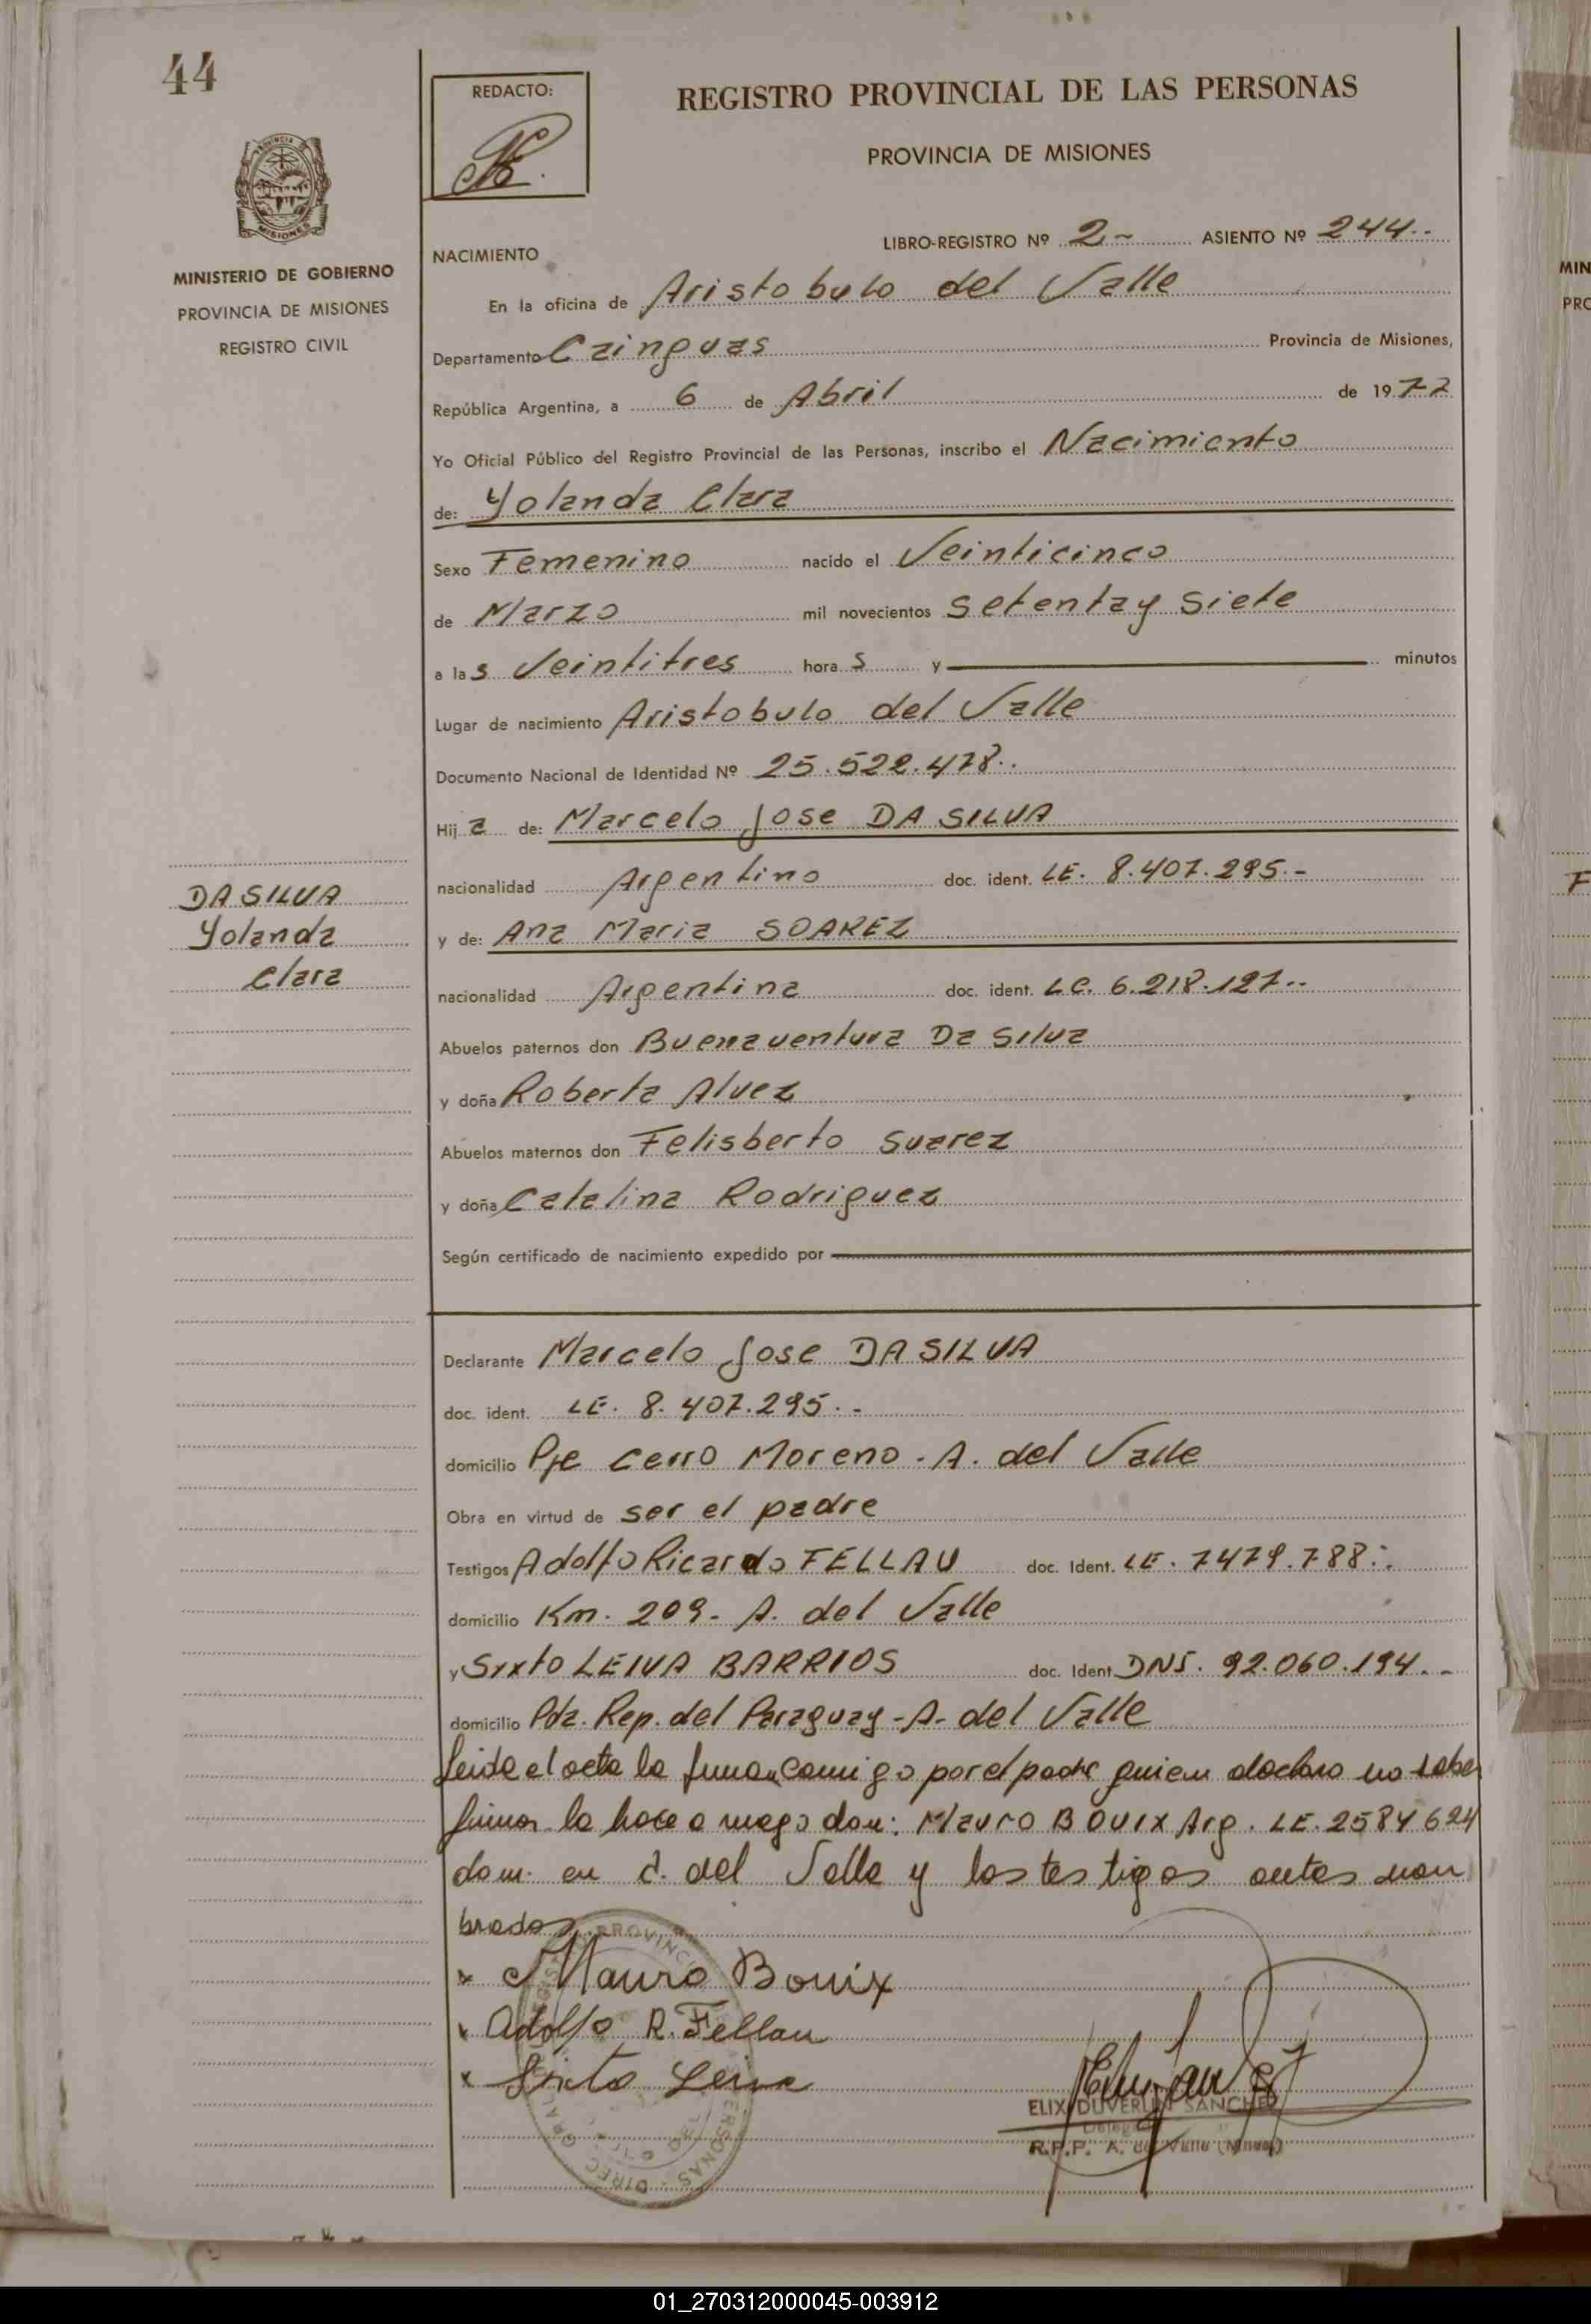 44
REDACTO:
REGISTRO PROVINCIAL DE LAS PERSONAS
PROVINCIA DE MISIONES
PROVINCIA
MISIONES
MINISTERIO DE GOBIERNO
PROVINCIA DE MISIONES
REGISTRO CIVIL
LIBRO-REGISTRO Nº 2.- ASIENTO Nº 244..
NACIMIENTO
En la oficina de Aristobulo del Valle
Departamento Cainguas Provincia de Misiones,
República Argentina, a 6 de Abril de 1977
Yo Oficial Público del Registro Provincial de las Personas, inscribo el Nacimiento
de: Yolanda Clara
Sexo Femenino nacido el Veinticinco
de Marzo mil novecientos setenta y siete
a las Veintitres horas y minutos
Lugar de nacimiento Aristobulo del Valle
Documento Nacional de Identidad Nº 25.522.478..
Hija de: Marcelo Jose DA SILVA
nacionalidad Argentino doc. ident. LE. 8.407.295.-
DA SILVA
Yolanda
Clara
y de: Ana Maria SOAREZ
nacionalidad Argentina doc. ident. LC. 6.218.127..
Abuelos paternos don Buenaventura Da Silva
y doña Roberta Alvez
Abuelos maternos don Felisberto Suarez
y doña Catalina Rodriguez
Según certificado de nacimiento expedido por
Declarante Marcelo Jose DA SILVA
doc. ident. LE. 8.407.295..-
domicilio Pje Cerro Moreno - A. del Valle
Obra en virtud de ser el padre
Testigos Adolfo Ricardo FELLAU doc. Ident. LE. 7479.788.
domicilio Km. 209- A. del Valle
y Sixto LEIVA BARRIOS doc. Ident. DNI. 92.060.194..-
domicilio Pda. Rep. del Paraguay - A- del Valle
Leida el acta la firman conmigo por el padre quien declara no saber
firmar lo hace a ruego don: Mauro BOUIX Arg. LE. 2584624
dom. en A. del Valle y los testigos antes nom
brados
x Mauro Bouix
x Adolfo R. Fellau
x Sixto Leiva
ELIX DUVERLIN SANCHEZ
R.P.P. A. del Valle
01_270312000045-003912